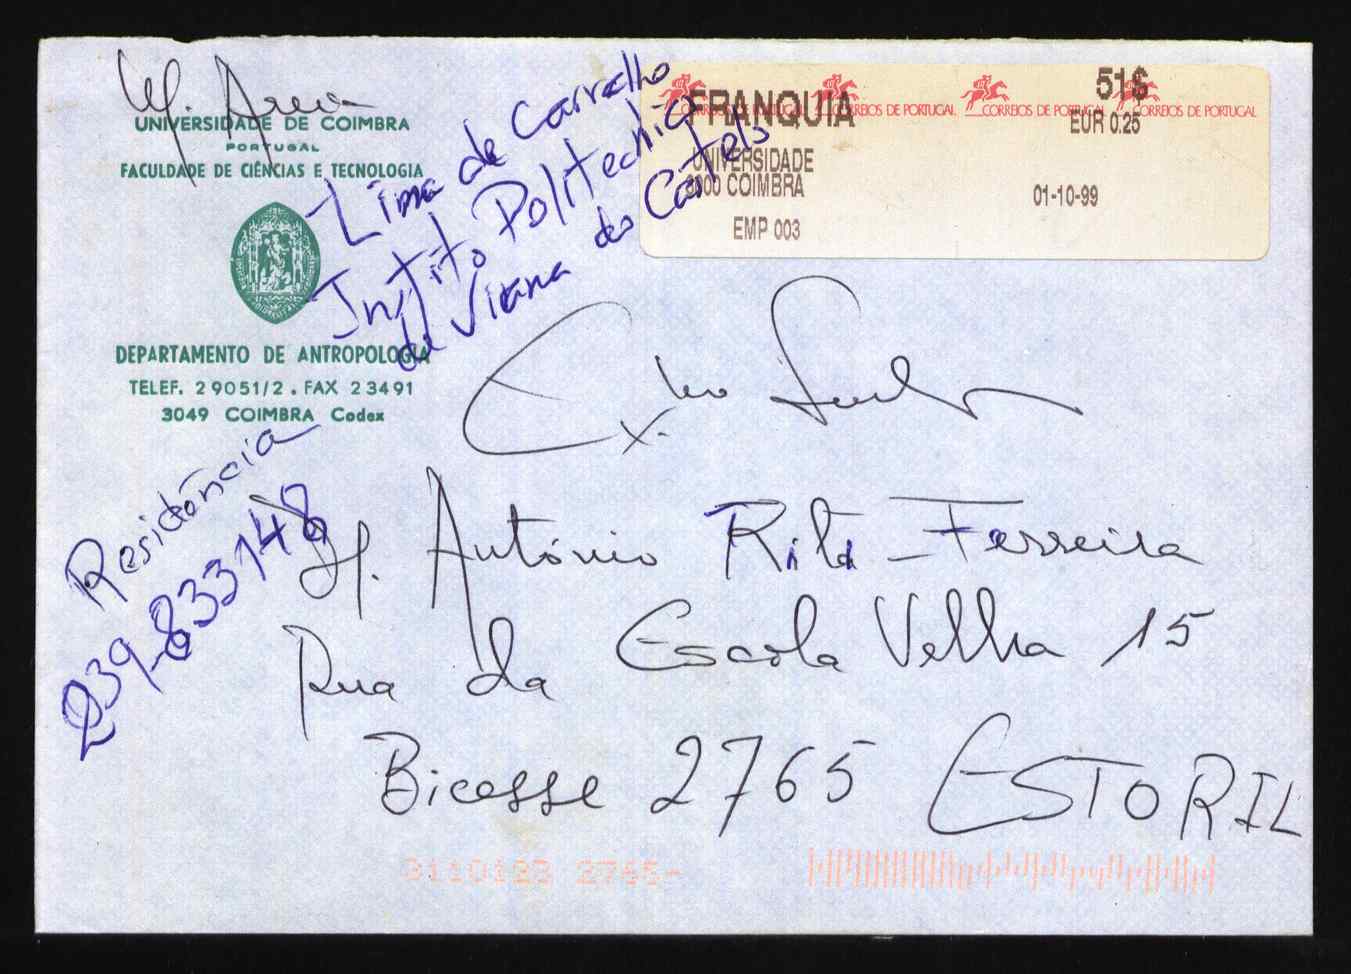 M. Areia
UNIVERSIDADE DE COIMBRA
PORTUGAL
FACULDADE DE CIÊNCIAS E TECNOLOGIA
DEPARTAMENTO DE ANTROPOLOGIA
TELEF. 29051/2. FAX 23491
3049 COIMBRA Codex
Lima de Carvalho
Instituto Politechnic
de Viana do Castelo
CORREIOS DE PORTUGAL CORREIOS DE PORTUGAL CORREIOS DE PORTUGAL CORREIOS DE PORTUGAL
FRANQUIA
51$
EUR 0.25
UNIVERSIDADE
3000 COIMBRA
01-10-99
EMP 003
Residência
239-833148
Exmo Senhor
Dr. António Rita-Ferreira
Rua da Escola Velha 15
Bicesse 2765 ESTORIL
3110123 2765-